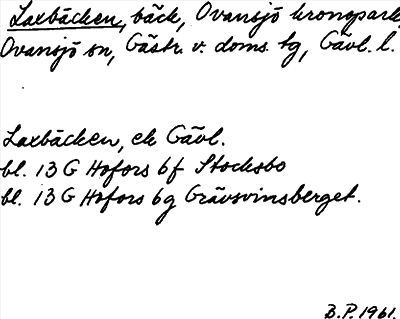 Laxbäcken, bäck, Ovansjö kronopark
Ovansjö sn, Gästr. v. doms. bg, Gävl. l.
Laxbäcken, ek Gävl.
bl. 13 G Hofors 6f Stocksbo
bl. 13 G Hofors 6g Grävsvinsberget.
B.P. 1961.